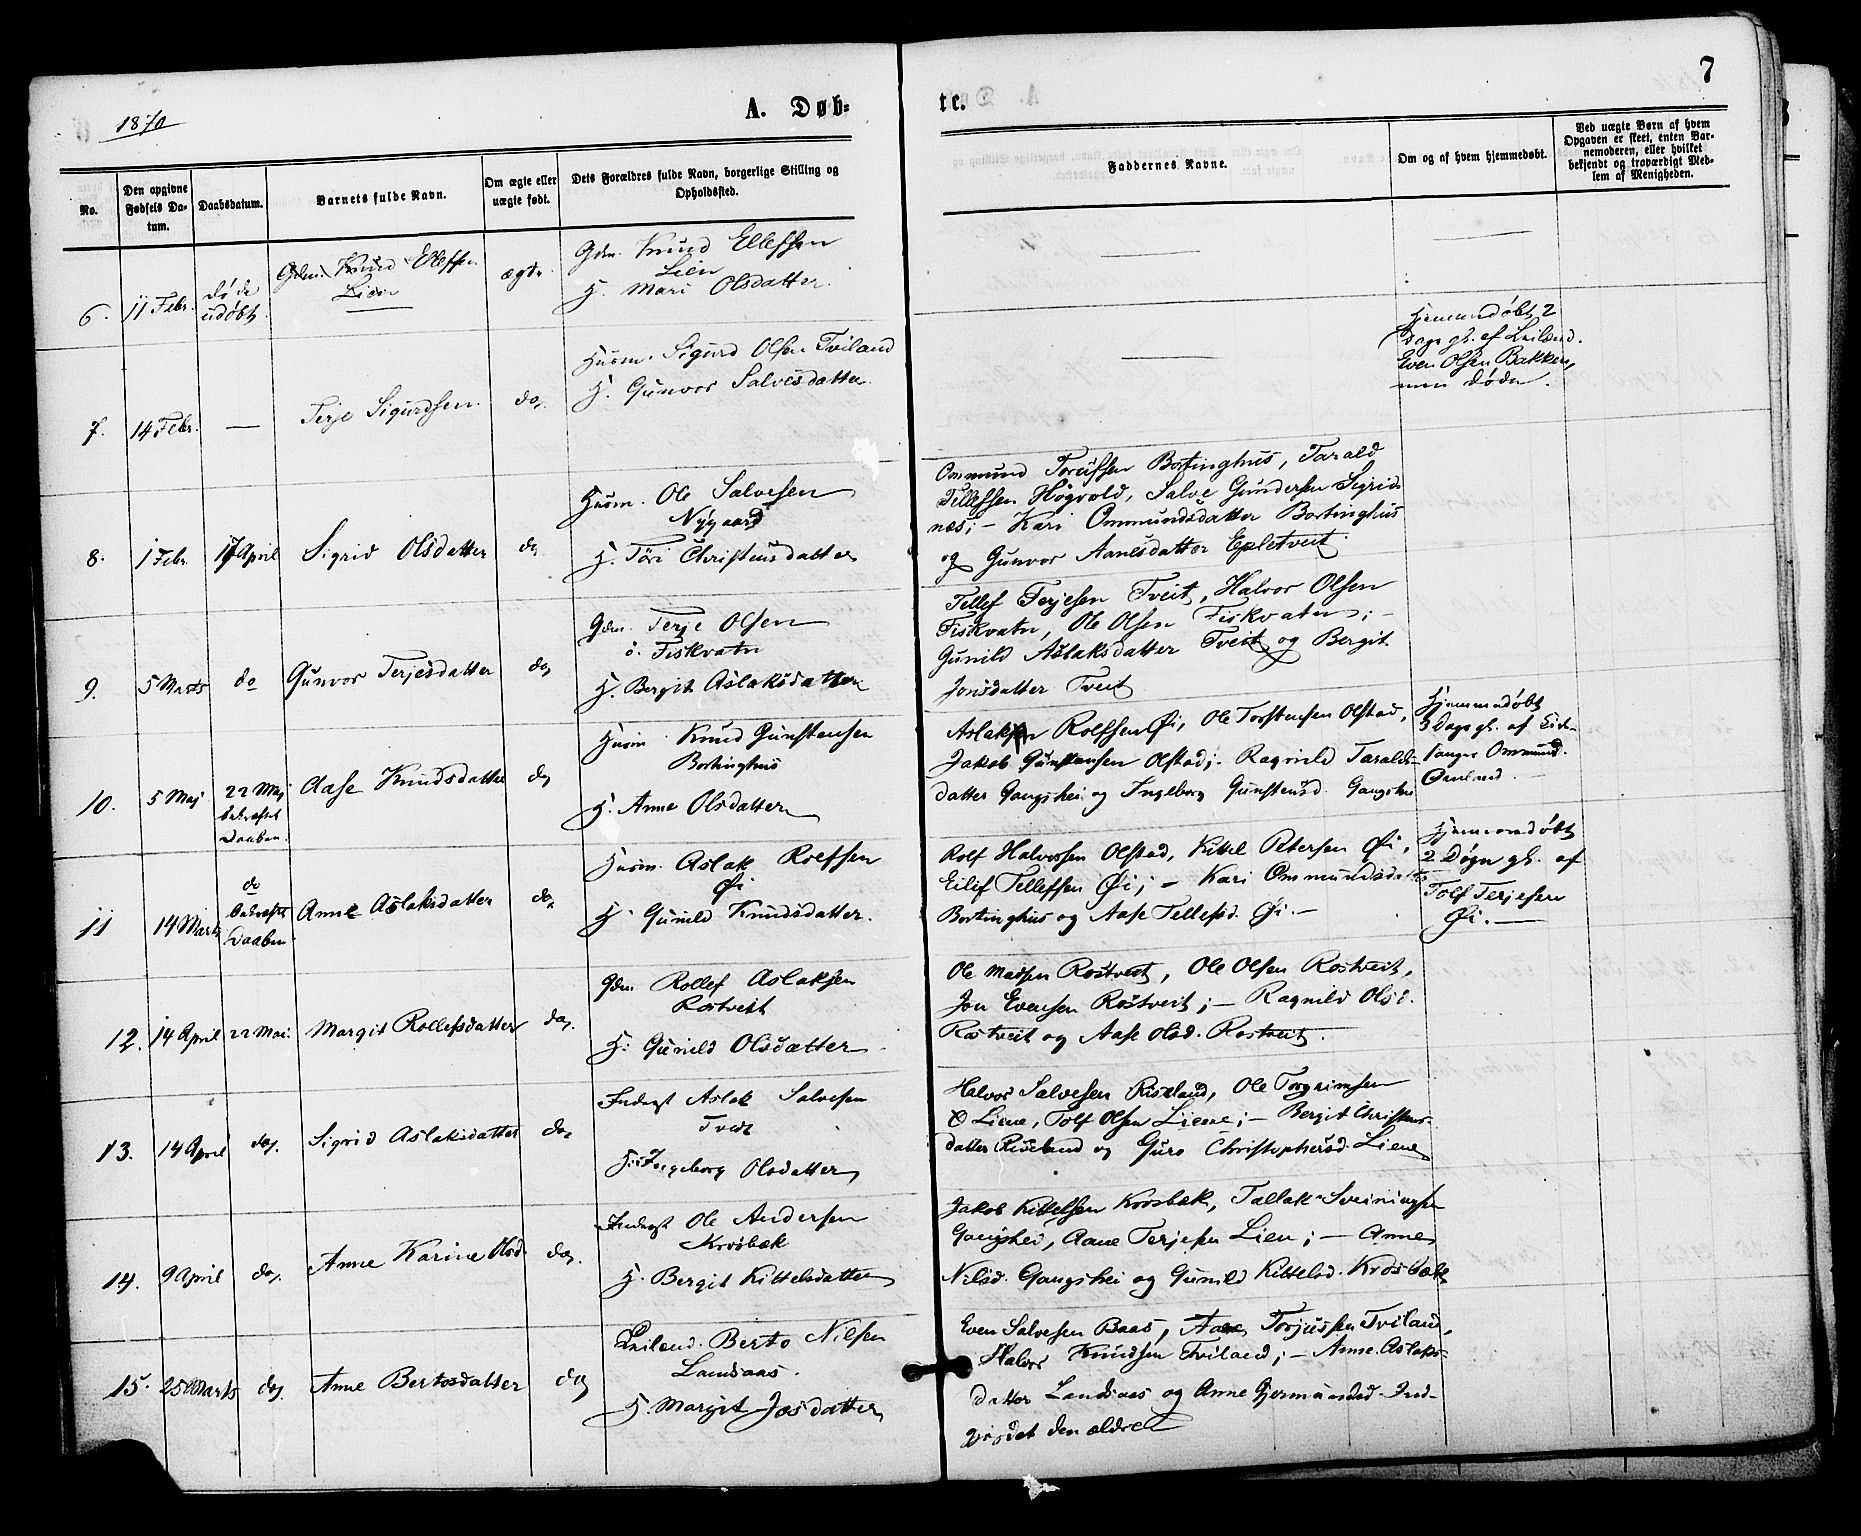 7
1870
A. Døb-
te.
No.
Den opgivne Fødsels Da-tum.
Daabsdatum.
Barnets fulde Navn.
Om ægte eller uægte født.
Dets Forældres fulde Navn, borgerlige Stilling og Opholdssted.
Faddernes Navne.
Om og af hvem hjemmedøbt.
Ved uægte Børn af hvem Opgaven er skeet, enten Bar-nemoderen, eller hvilket bekjendt og troværdigt Med-lem af Menigheden.
6. 11 Febr. døde udøbt
Gdm. Knud Ellefsen
Lien
ægte
Gdm. Knud Ellefsen
Lien
H. Mari Olsdatter.
7. 14 Febr. — Terje Sigurdsen. do.
Husm. Sigurd Olsen Tviland
H. Gunvor Salvesdatter.
Hjemmedøbt 2
Dage gl. af Leilænd.
Even Olsen Bakken,
men døde.
8. 1 Febr. 17 April Sigrid Olsdatter do
Husm. Ole Salvesen
Nygaard
H. Tori Christensdatter
Ommund Torjussen Bortinghus, Tarald
Tellefsen Høgvold, Salve Gundersen Sigrid-
næs; – Kari Ommundsdatter Bortinghus
og Gunvor Aanesdatter Epletveit.
9. 5 Marts do Gunvor Terjesdatter do
Gdm. Terje Olsen
ö. Fiskvatn
H. Bergit Aslaksdatter
Tellef Terjesen Tveit, Halvor Olsen
Fiskvatn, Ole Olsen Fiskvatn; –
Gunild Aslaksdatter Tveit og Bergit
Jonsdatter Tveit
10. 5 Maj 22 Maj bekræftet Daaben. Aase Knudsdatter do
Husm. Knud Gunstensen
Bortinghus
H. Anne Olsdatter
Aslak Rolfsen Øi, Ole Torstensen Olstad,
Jakob Gunstensen Olstad; Ragnild Taralds-
datter Gangshei og Ingeborg Gunstensd. Gangshei
Hjemmedøbt
3 Dage gl. af
Ommund
11 14 Marts do bekræftet Daaben Anne Aslaksdatter do.
Husm. Aslak Rolfsen
Øi
H. Gunild Knudsdatter.
Rolf Halvorsen Olstad, Kittel Petersen Øi,
Eilif Tellefsen Øi; – Kari Ommundsdatter
Bortinghus og Aase Tellefsd. Øi. –
Hjemmedøbt
2 Døgn gl. af
Tolf Terjesen
Øi. –
12. 14 April 22 Mai. Margit Rollefsdatter do.
Gdm. Rollef Aslaksen
Rostveit
H. Gunild Olsdatter
Ole Madsen Rostveit, Ole Olsen Rostveit,
Jon Evensen Rostveit; – Ragnild Olsd.
Rostveit og Aase Olsd. Rostveit.
13. 14 April do. Sigrid Aslaksdatter do.
Inderst Aslak Salvesen
Tveit
H. Ingeborg Olsdatter
Halvor Salvesen Risland, Ole Torgrimsen
Liene, Tolf Olsen Liene; – Bergit Christens-
datter Risland og Guro Christophersd. Liene
14. 9 April do. Anne Karine Olsd. do.
Inderst Ole Andersen
Krosbæk
H. Bergit Kittelsdatter
Jakob Kittelsen Krosbæk, Tallak Sveinungsen
Gangshei, Aane Terjesen Lien; – Anne
Nilsd. Gangshei og Gunild Kittelsd. Krosbæk
15. 25 Marts do. Anne Bertosdatter do
Leilænd. Berto Nilsen
Landaas.
H. Margit Josdatter
Even Salvesen Baas, Aane Torjussen Tviland,
Halvor Knudsen Tviland; – Anne Aslaks-
datter Landaas og Anne Gjermundsd. Ind-
den ældre